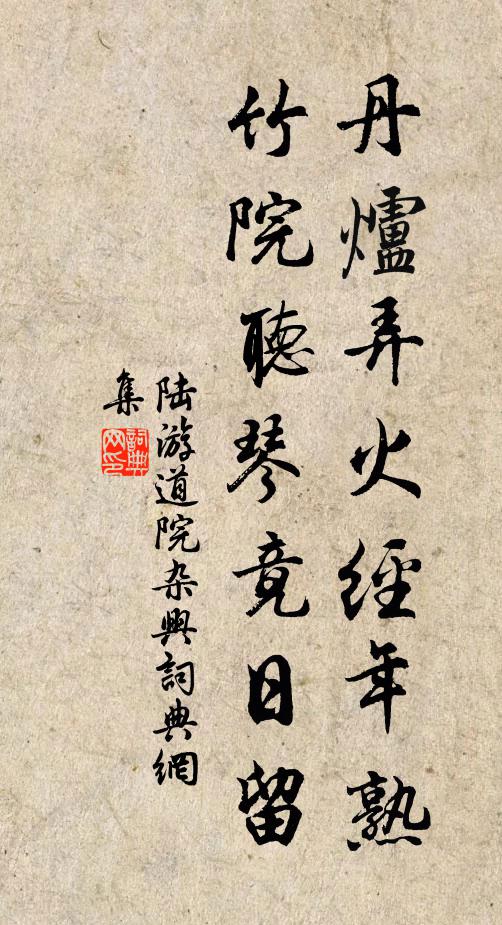 丹爐弄火經年熟
竹院聽琴竟日留
陆游道院杂興詞典網
集
詞典网印